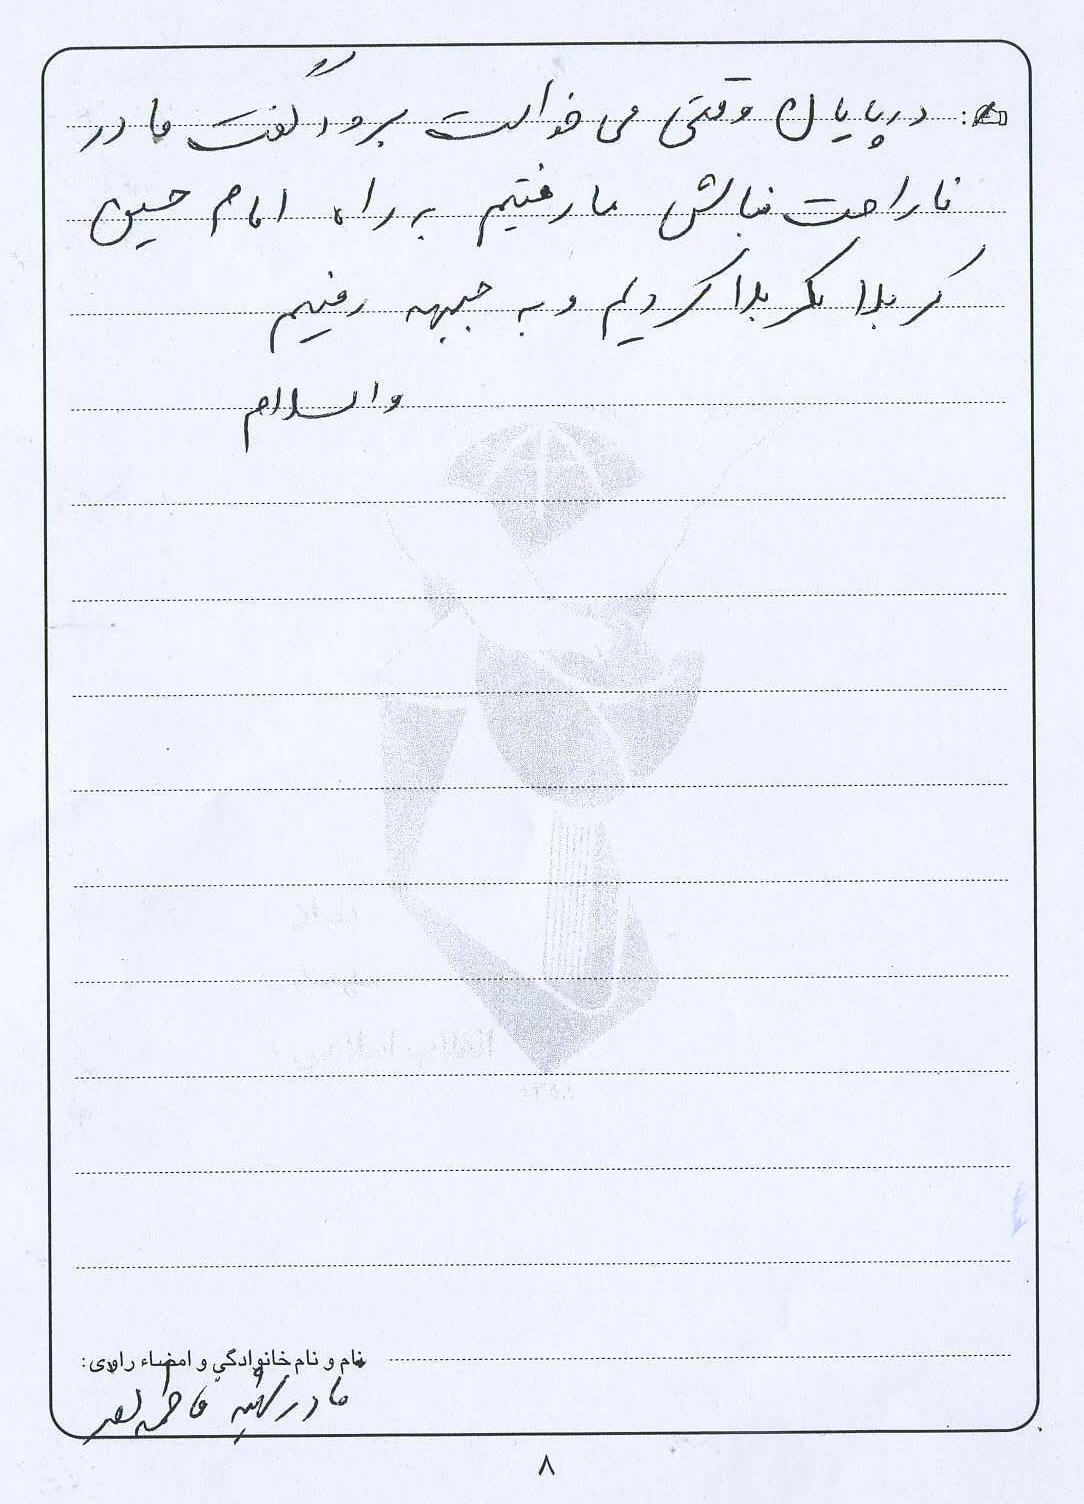 در پایان وقتی می خواست برود گفت مادر
ناراحت نباش ما رفتیم به راه امام حسین
کربلا کربلا کردیم و به جبهه رفتیم
والسلام
نام و نام خانوادگی و امضاء راوی:
مادر شهید فاطمه
۸